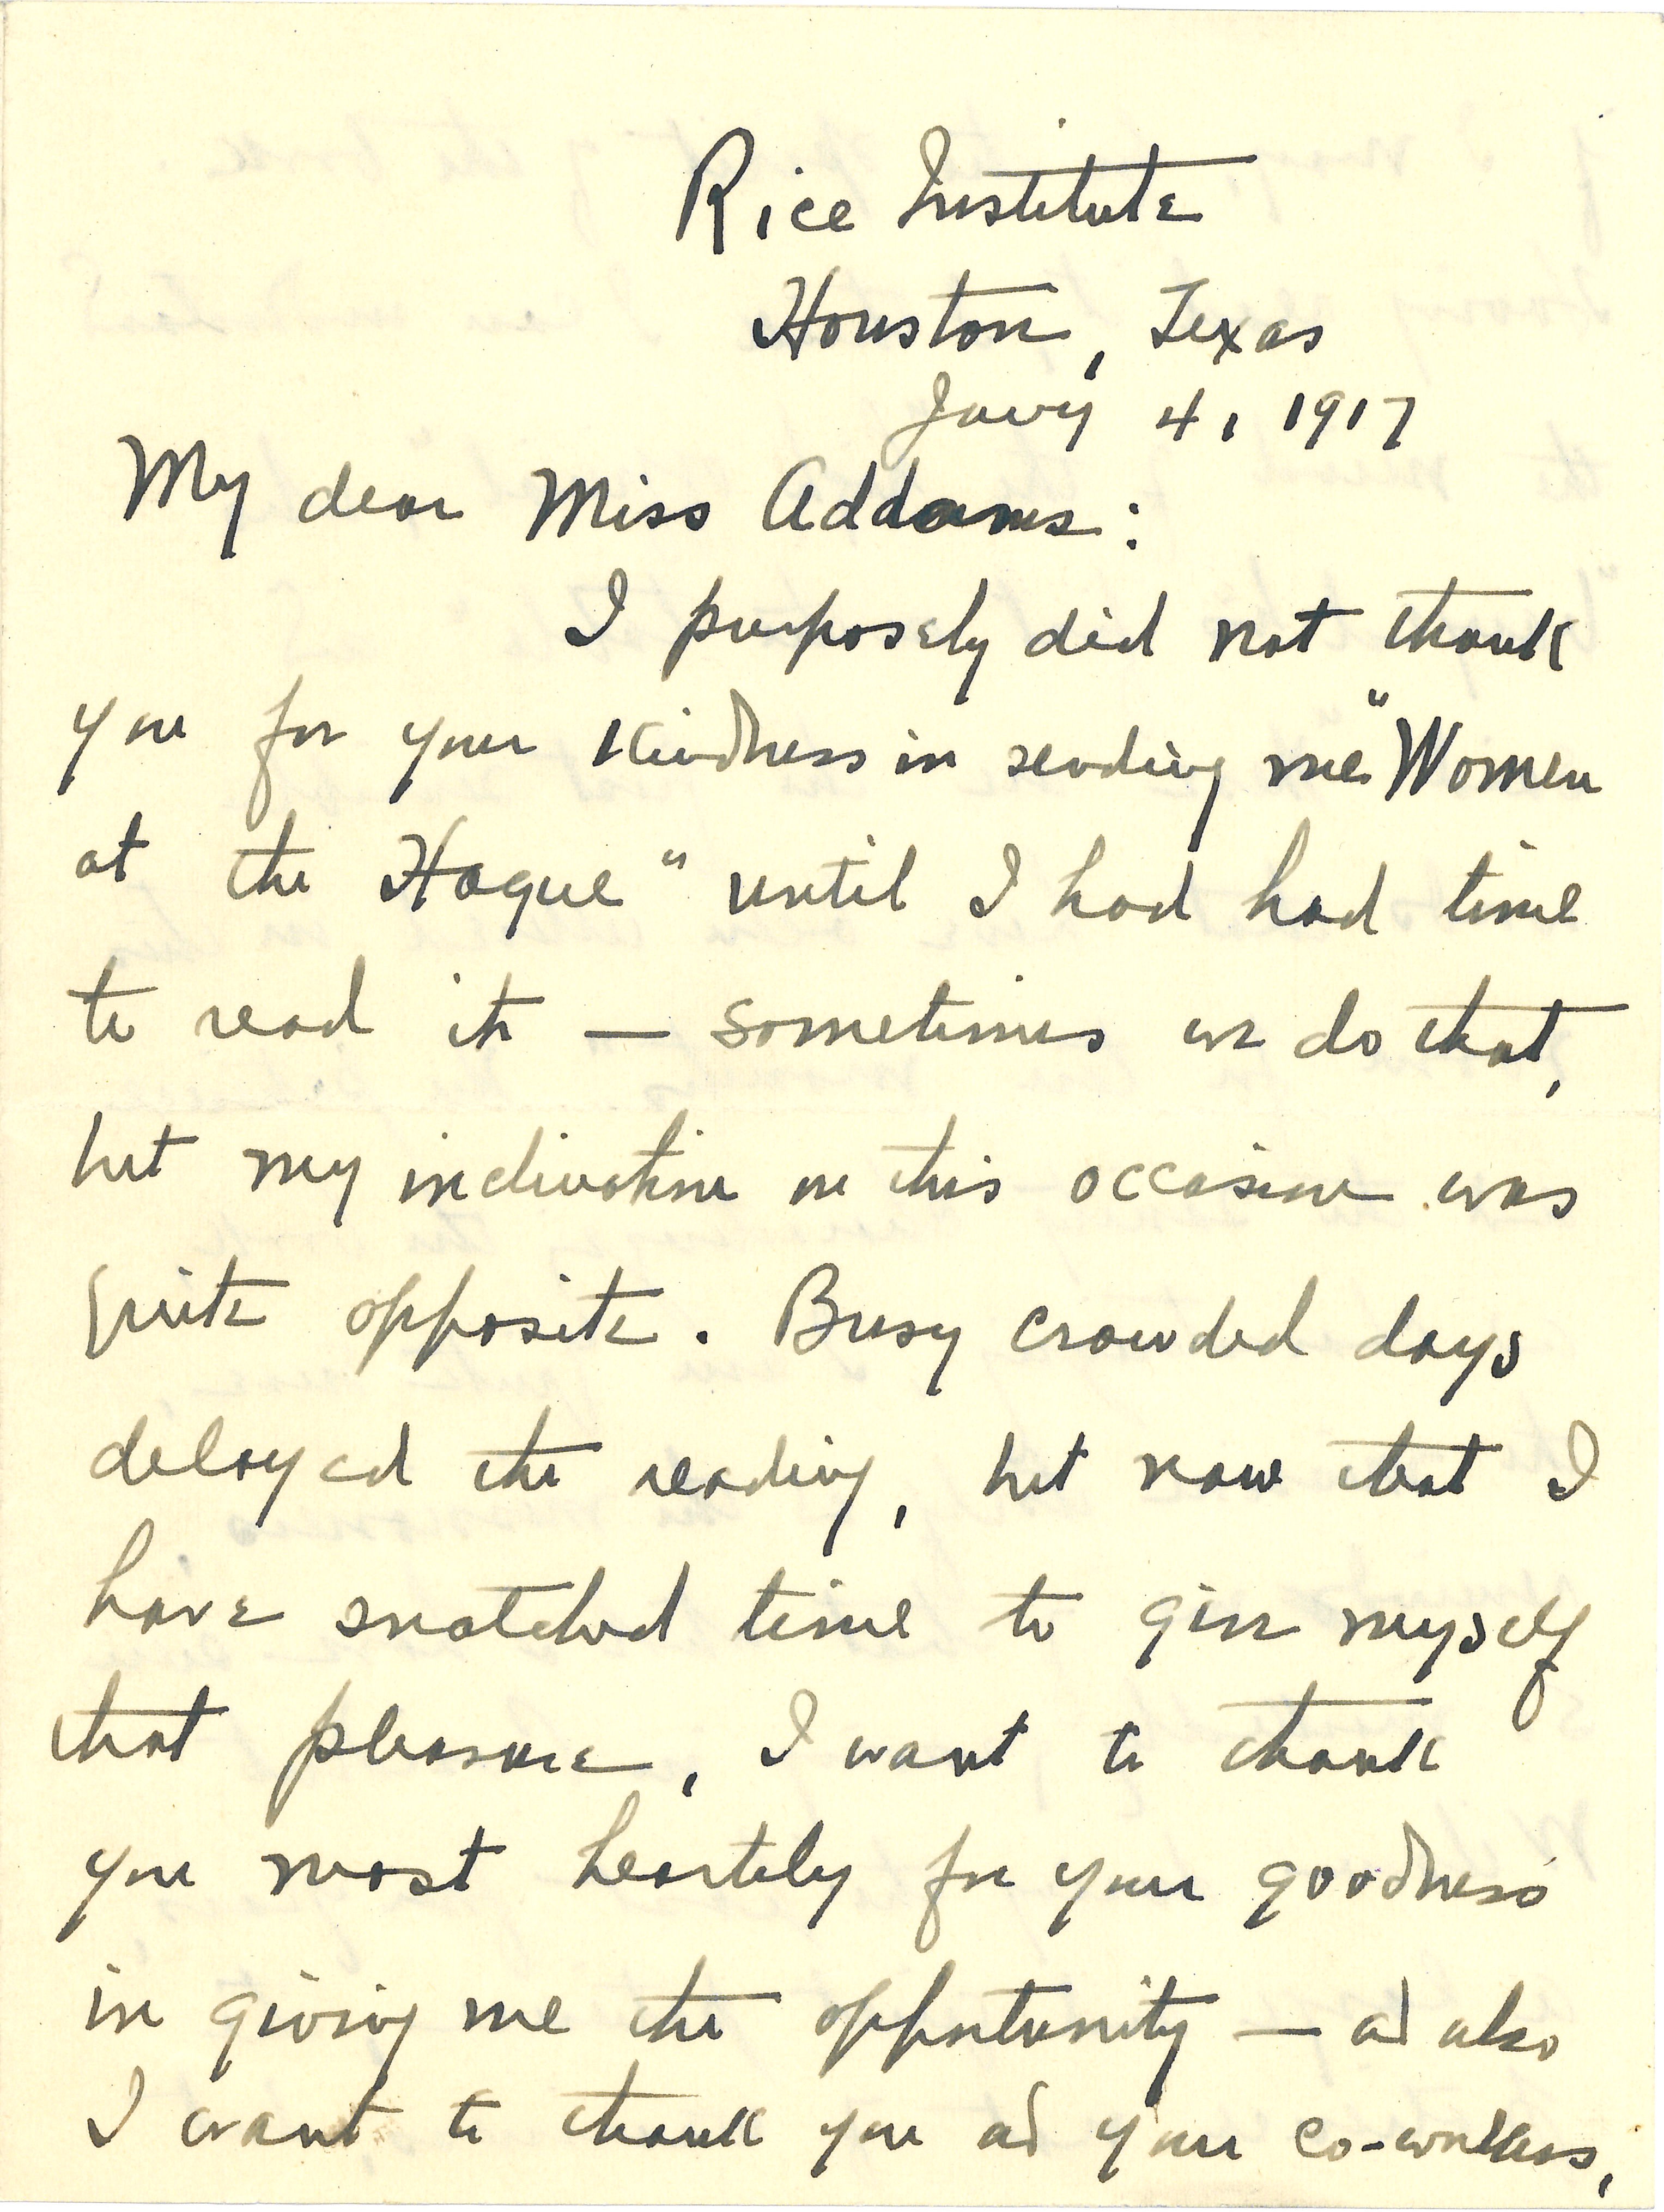 Rice Institute
Houston, Texas
Jany 4, 1917
My dear Miss Addams:
I purposely did not thank
you for your kindness in sending me "Women
at the Hague" until I had had time
to read it — sometimes we do that,
but my inclination on this occasion was
quite opposite. Busy crowded days
delayed the reading, but now that I
have snatched time to give myself
that pleasure, I want to thank
you most heartily for your goodness
in giving me the opportunity — ad also
I want to thank you ad your co-workers,